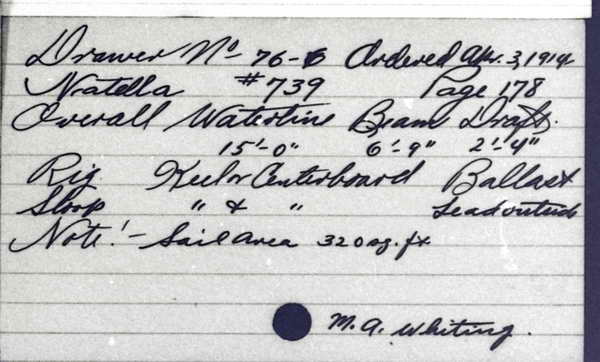 Drawer No 76-6 Ordered Apr. 3, 1914
Natella #739 Page 178
Overall Waterline Beam Draft.
15'-0" 6'-9" 2'-4"
Rig Keel or Centerboard Ballast
Sloop " & " Lead outside
Note! - Sail area 320 sq. ft
M. A. Whiting.